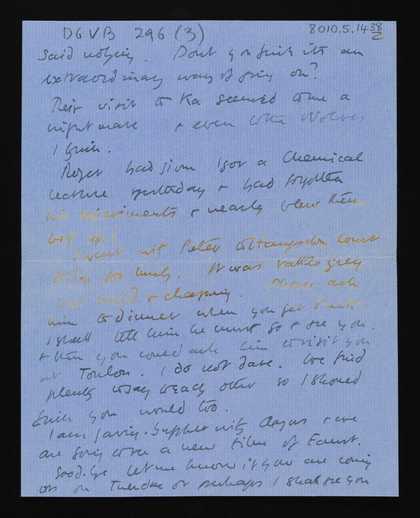 DGVB 296 (3)
8010.5.1438
2
said nothing. Dont you think its an
extraordinary way of going on?
Their visit to Ka seemed to me a
nightmare & even to the Wolves
I think.
Roger had given a Chemical
lecture yesterday & had forgotten
his experiments & nearly blew them
up!
I went with Peter to Hampton Court
today for lunch. It was rather grey
but &
him to dinner when you get back.
I shall tell him he must go & see you.
& then you could ask him to visit you
at Toulon. I do not dare. We find
plenty to say to each other so I should
think you would too.
I am having Supper with & we
are going to see a new film of Faust.
Goodbye let me know if you are coming
on Tuesday or perhaps I shall see you